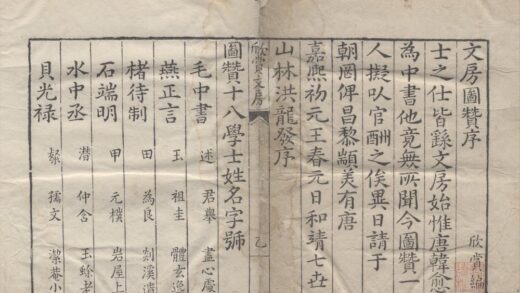 文房圖贊序
欣賞編
士之仕皆繇文房始惟唐韓愈
為中書他竟無所聞今圖贊一
人擬以官酬之俟異日請于
朝罔俾昌黎顓美有唐
嘉熈初元王春元日和靖七世
山林洪龍發序
欣賞文房
乙
圖贊十八學士姓名字號
毛中書 述 君舉 盡心處
燕正言 玉 祖圭 體玄逸
楮待制 田 為良 剡溪遺
石端明 甲 元樸 岩屋上
水中丞 潛 仲含 玉蜍老
貝光禄 粲 孺文 潔菴小